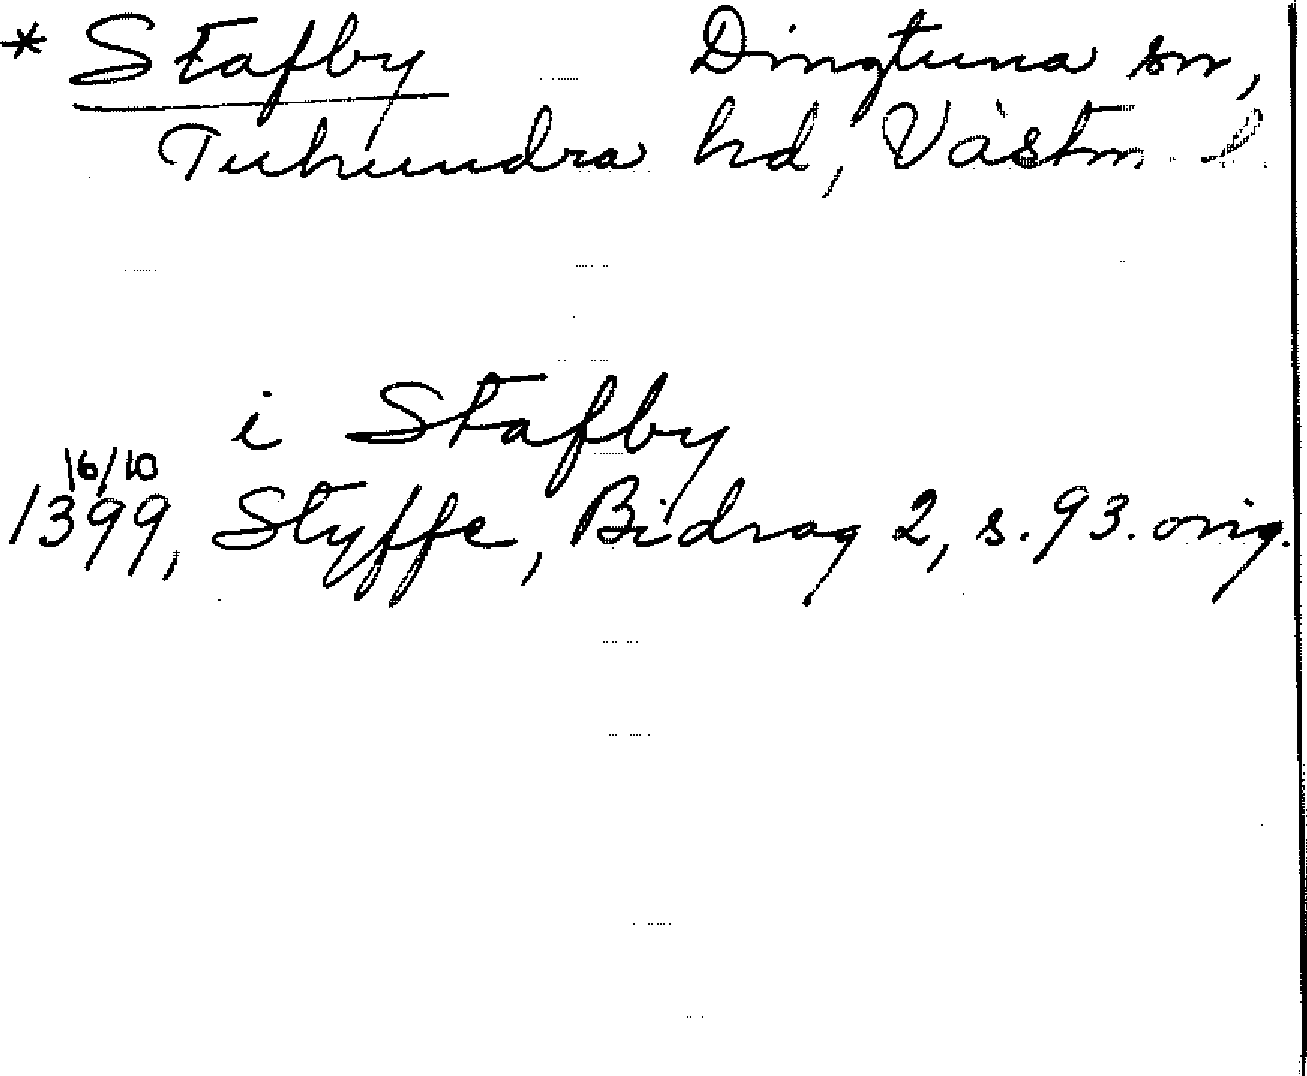 * Stafby Dingtuna sn,
Tuhundra hd, Västm l.
i Stafby
16/10
1399, Styffe, Bidrag 2, s. 93. orig.